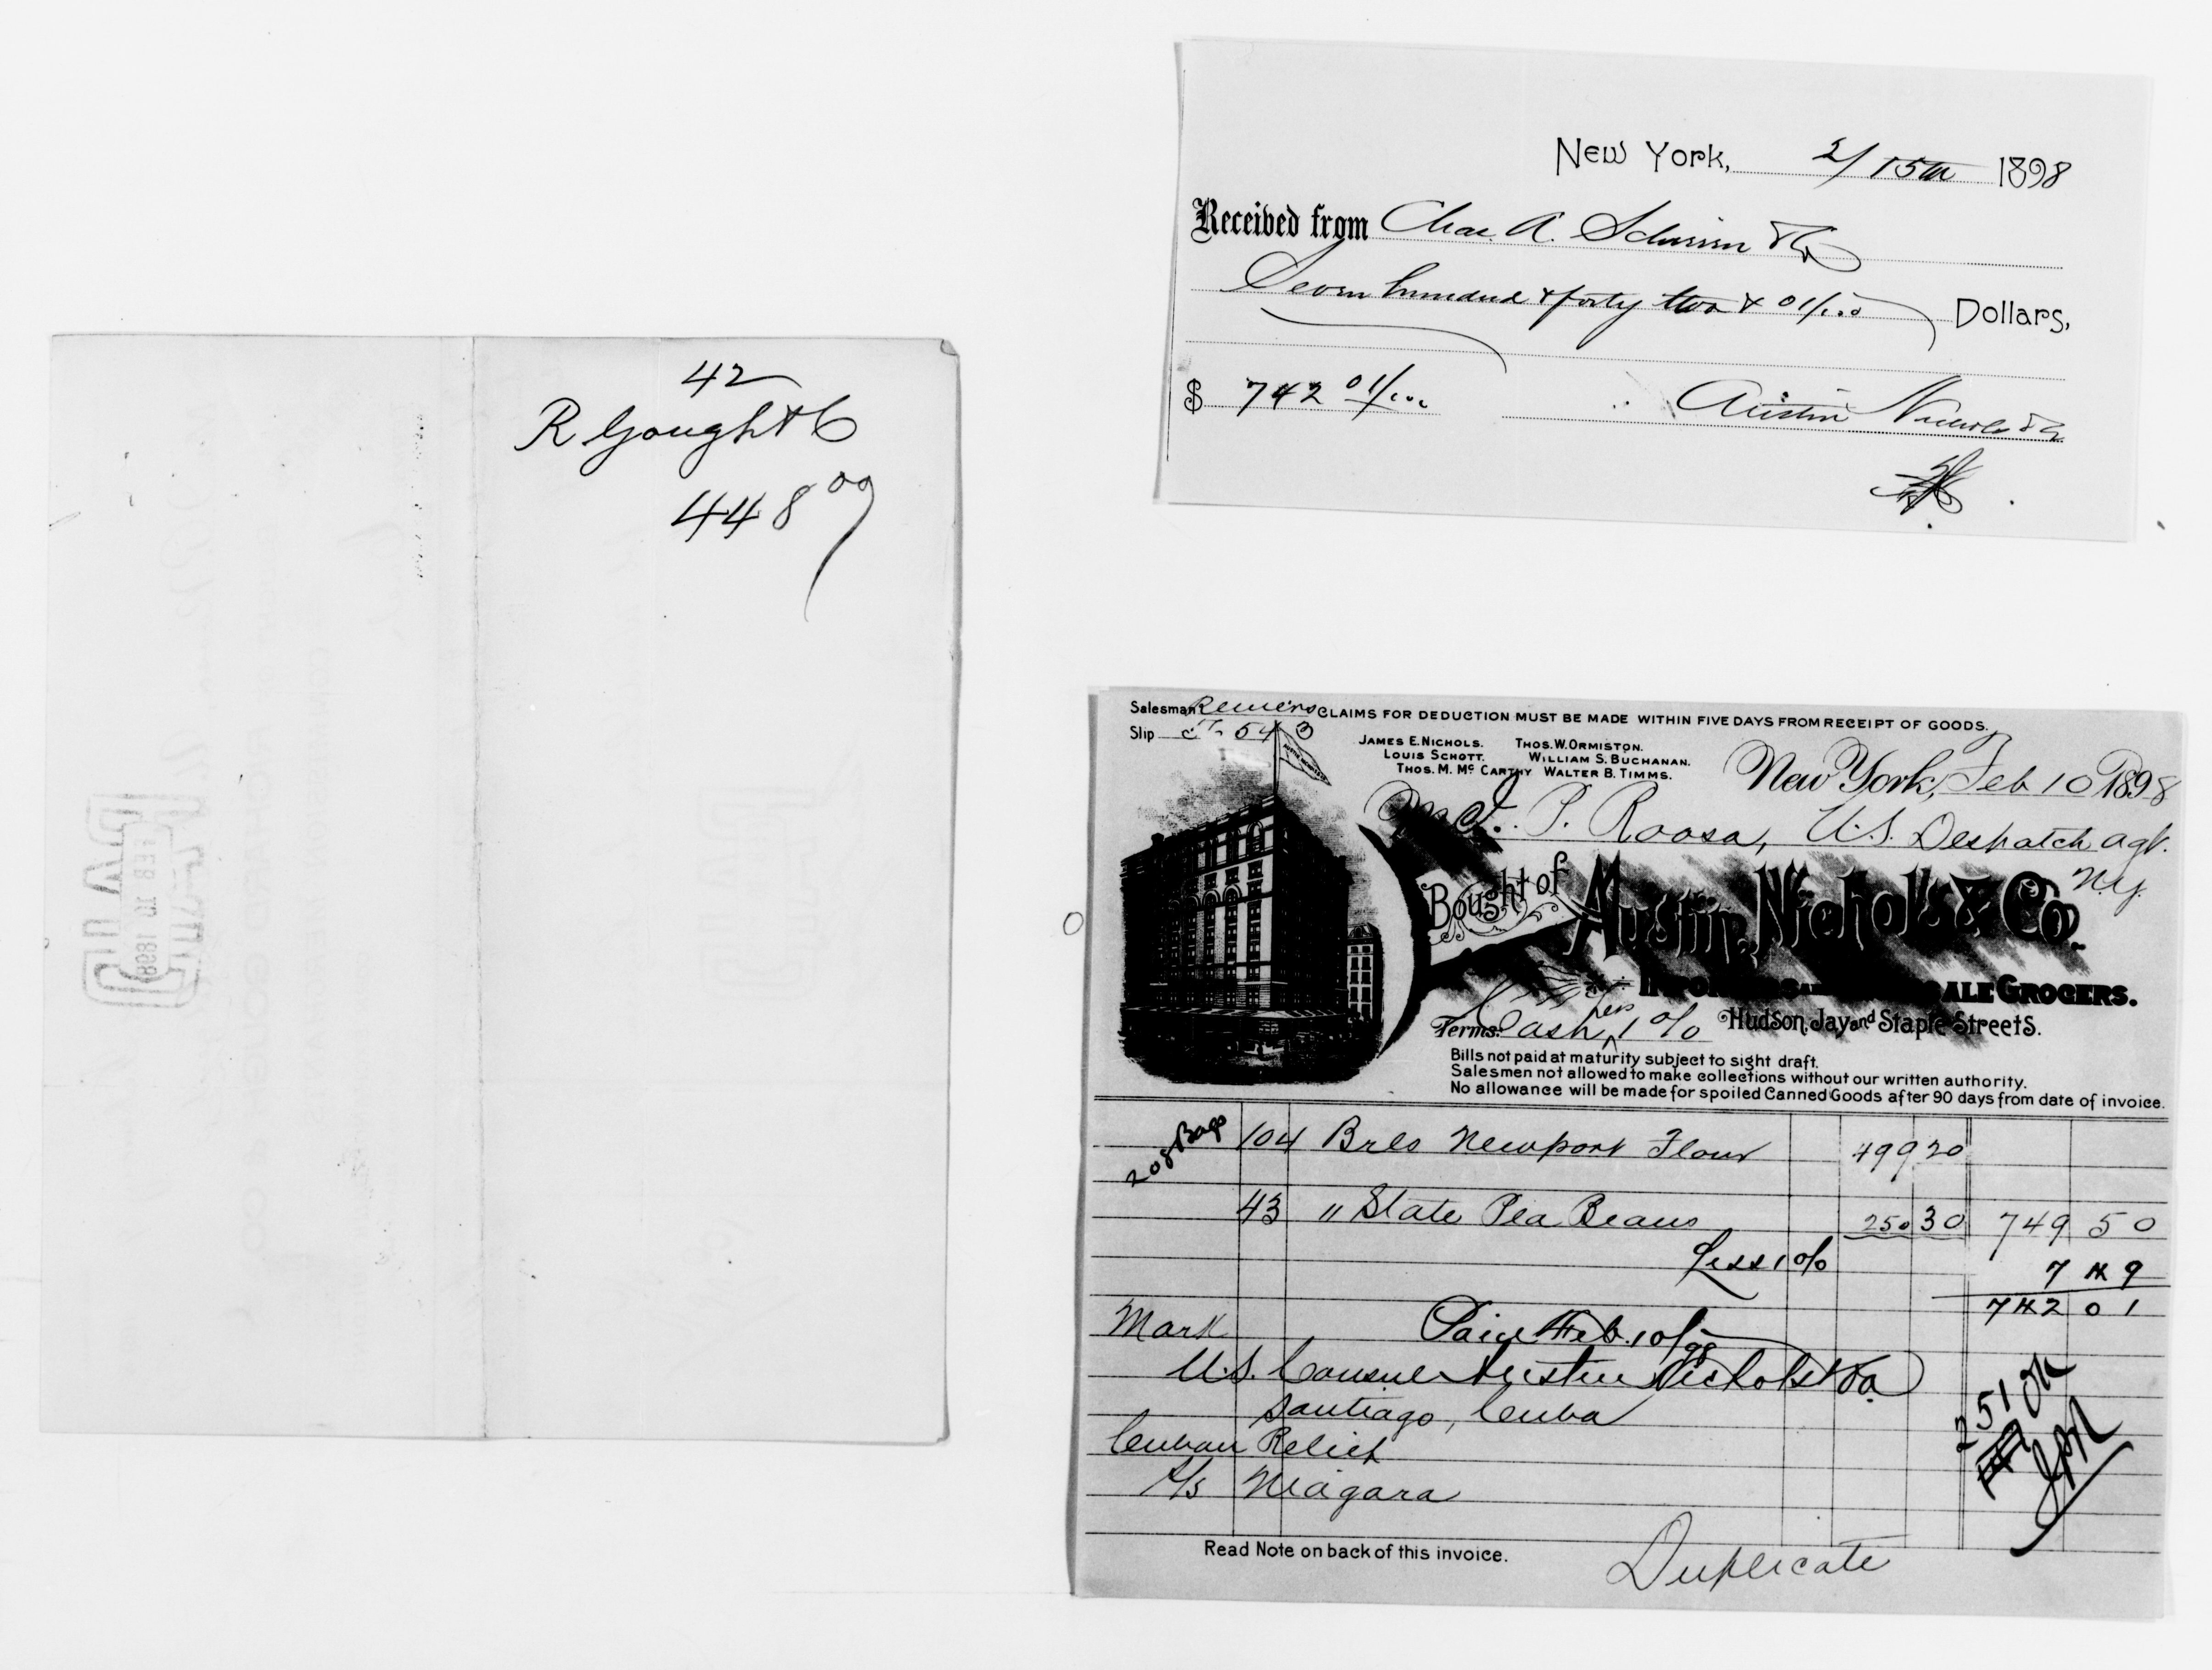 42
R Gough & Co
448 09
New York, 2/15th 1898
Received from Chas. A. Schieren & Co
Seven hundred & forty two & 01/100 Dollars,
$ 742 01/100 Austin Nichols & Co
Salesman CLAIMS FOR DEDUCTION MUST BE MADE WITHIN FIVE DAYS FROM RECEIPT OF GOODS.
Slip 543
JAMES E. NICHOLS. THOS. W. ORMISTON.
LOUIS SCHOTT. WILLIAM S. BUCHANAN.
THOS. M. McCARTHY WALTER B. TIMMS.
New York, Feb 10 1898
M I. P. Roosa, U.S. Despatch agt.
N.Y.
Bought of Austin, Nichols & Co.
IMPORTERS AND WHOLESALE GROCERS.
Terms: Cash, less 1 % Hudson, Jay and Staple Streets.
Bills not paid at maturity subject to sight draft.
Salesmen not allowed to make collections without our written authority.
No allowance will be made for spoiled Canned Goods after 90 days from date of invoice.
208 Bags 104 Brls Newport Flour 499 20
43 " State Pea Beans 250 30 749 50
Less 1 % 7 49
742 01
Mark Paid Feb. 10/98
U.S. Consul Austin Nichols & Co.
Santiago, Cuba
Cuban Relief
S/S Niagara
251 OK
Read Note on back of this invoice.
Duplicate
FEB 10 1898